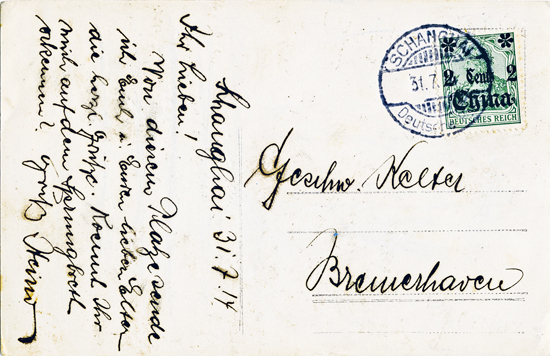 Shanghai 31.7.14
Ihr Lieben!
Von diesem Platze sende
ich Euch u. Euren lieben Eltern
die herzl. Grüße. Koennt Ihr
mich auf dem Sprungbrett
erkennen? Gruß
SCHANGHAI
31.7.
Deutsche
2 Cents 2
China
DEUTSCHES REICH
Geschw. Kelter
Bremerhaven